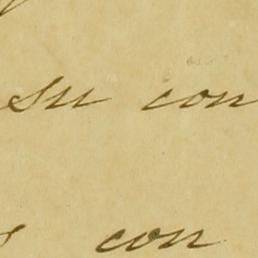 su con
con